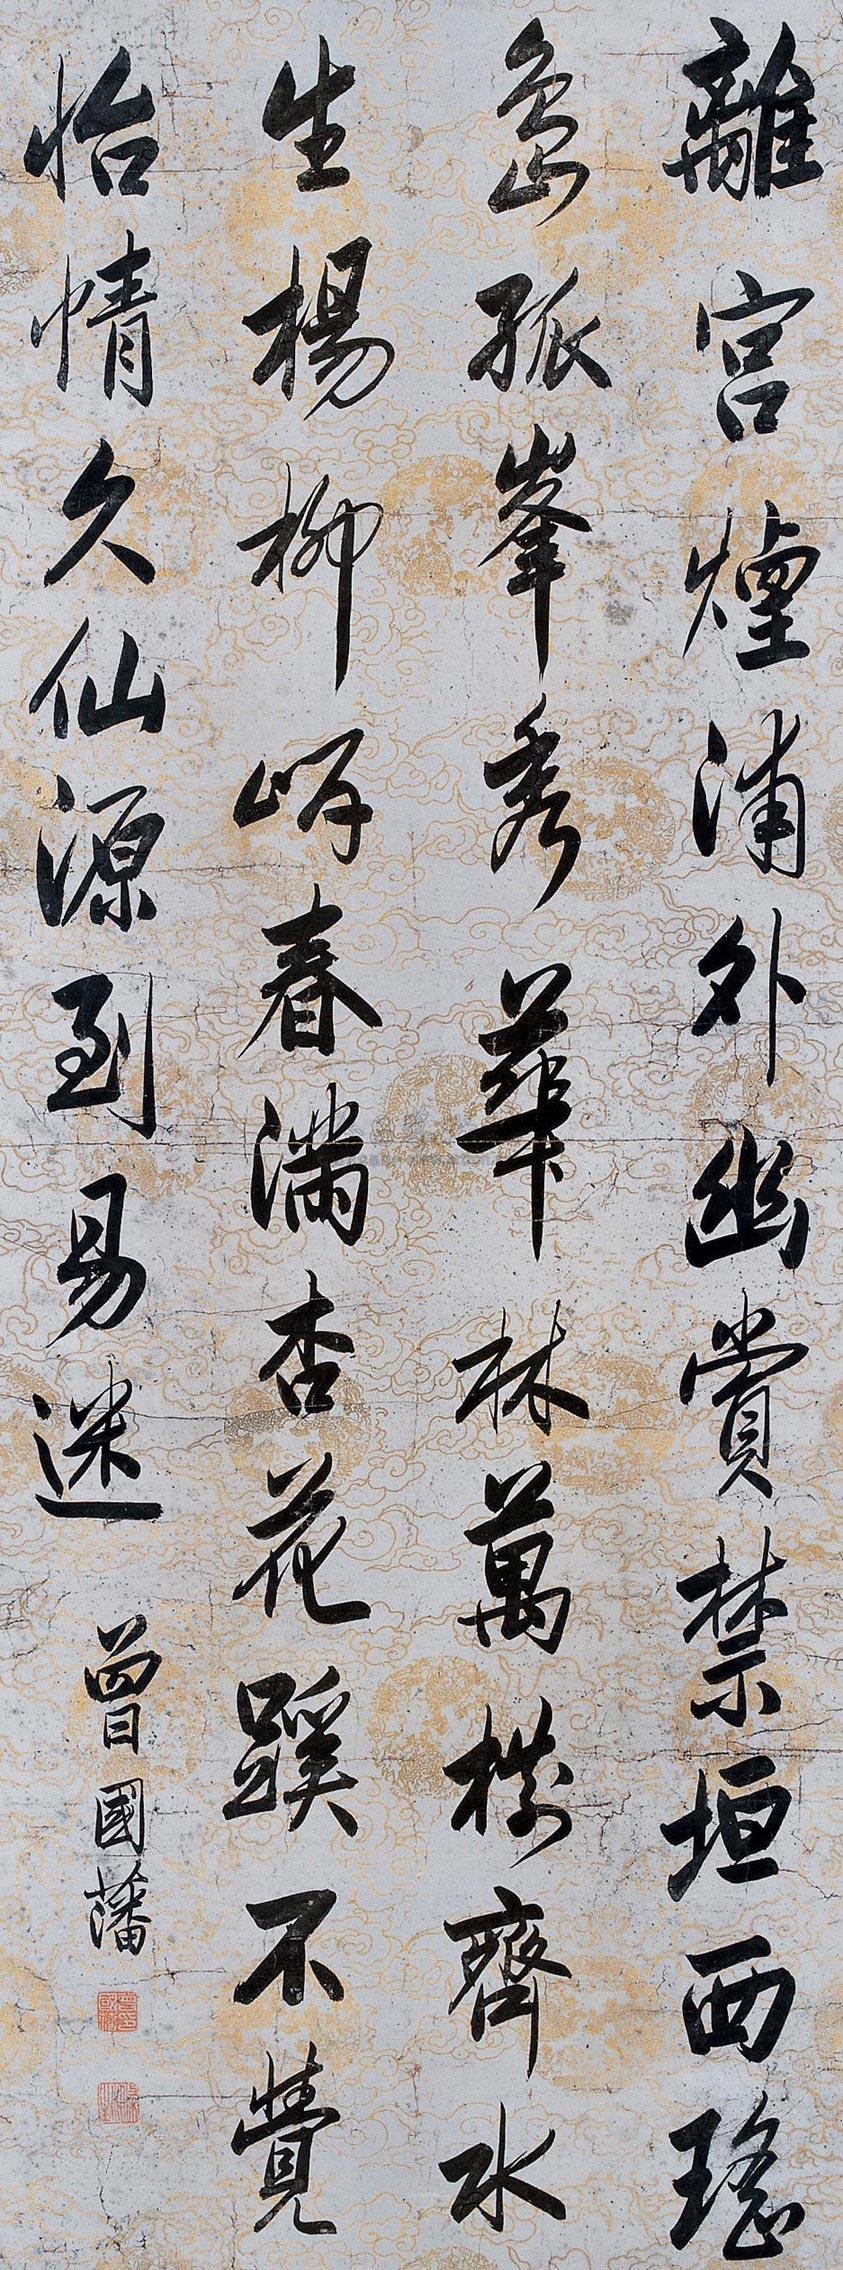 離宮煙浦外幽賞禁垣西瑤
島孤峯秀華林萬樹齊水
生楊柳岍春滿杏花蹊不覺
怡情久仙源到易迷
曾國藩